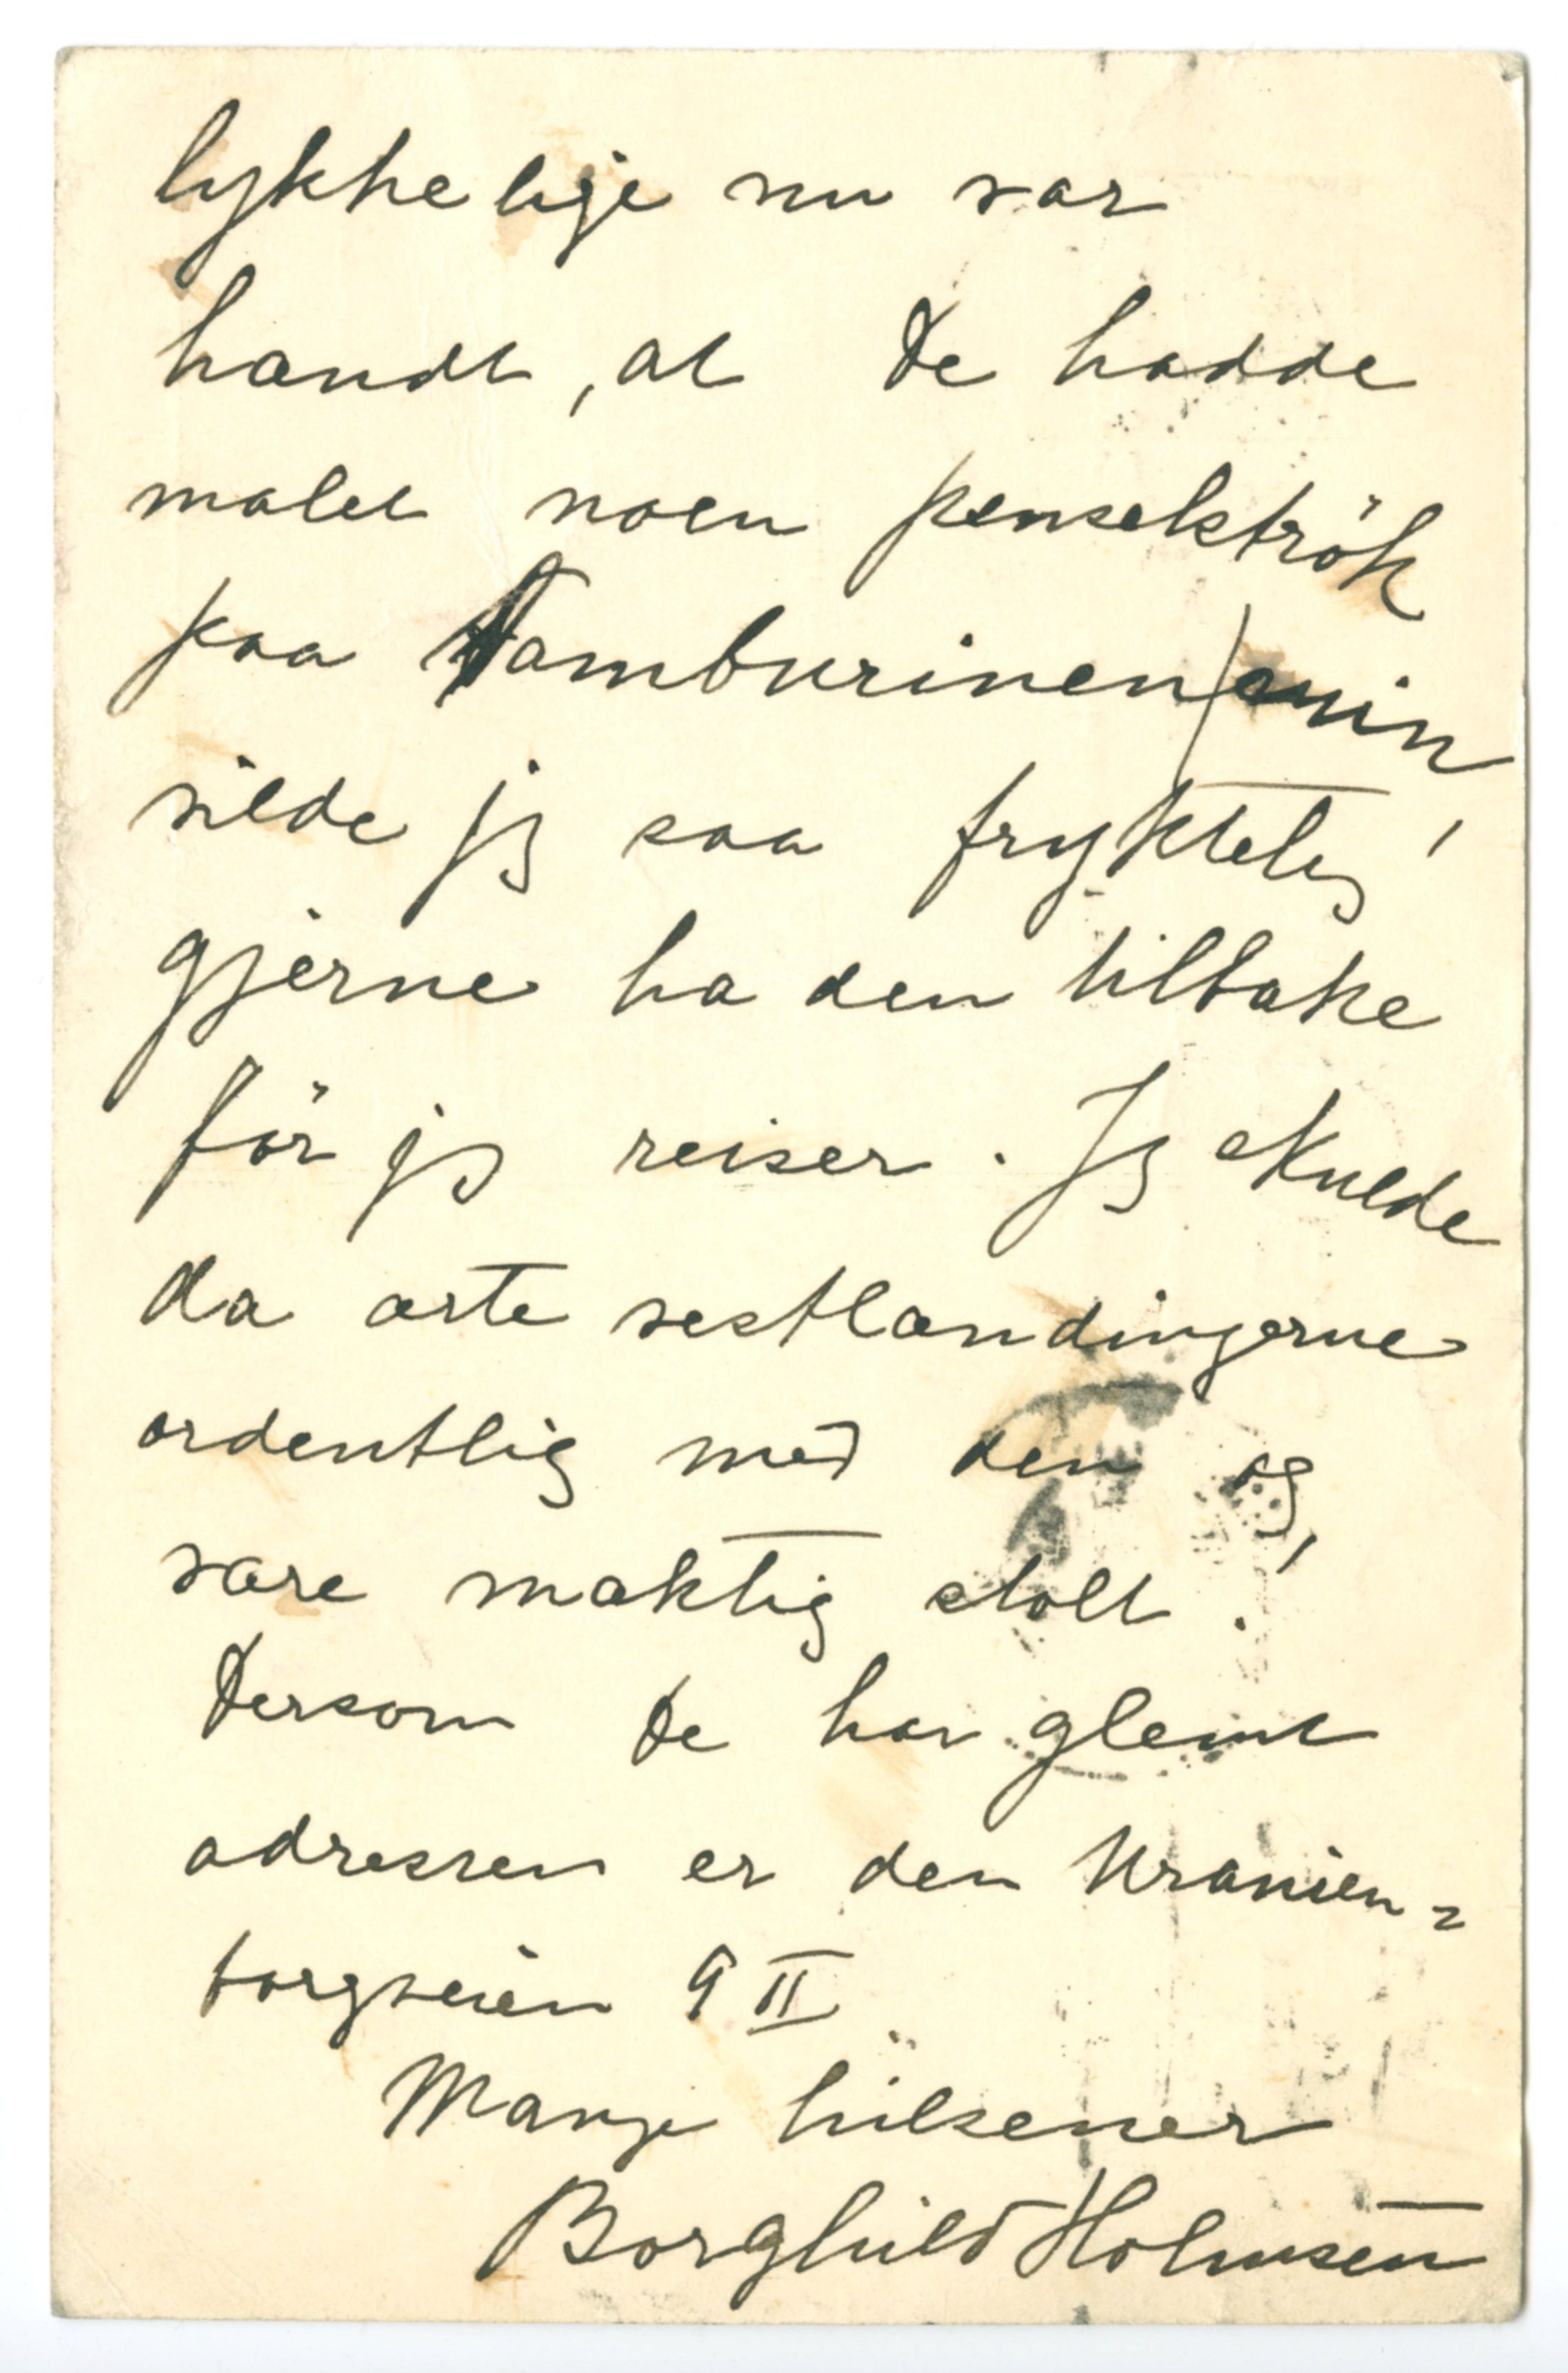 lykkelige nu var
hændt, at De hadde
malet noen penselströk
paa Tamburinen min,
vilde jeg saa frykteleg
gjerne ha den tilbake
för jeg reiser. Jeg skulde
da ærte vestlændingerne
ordentlig med den og
være mæktig stolt!
Dersom De har glemt
adressen er den Uranien=
borgveien 9 II
Mange hilsener
Borghild Holmsen